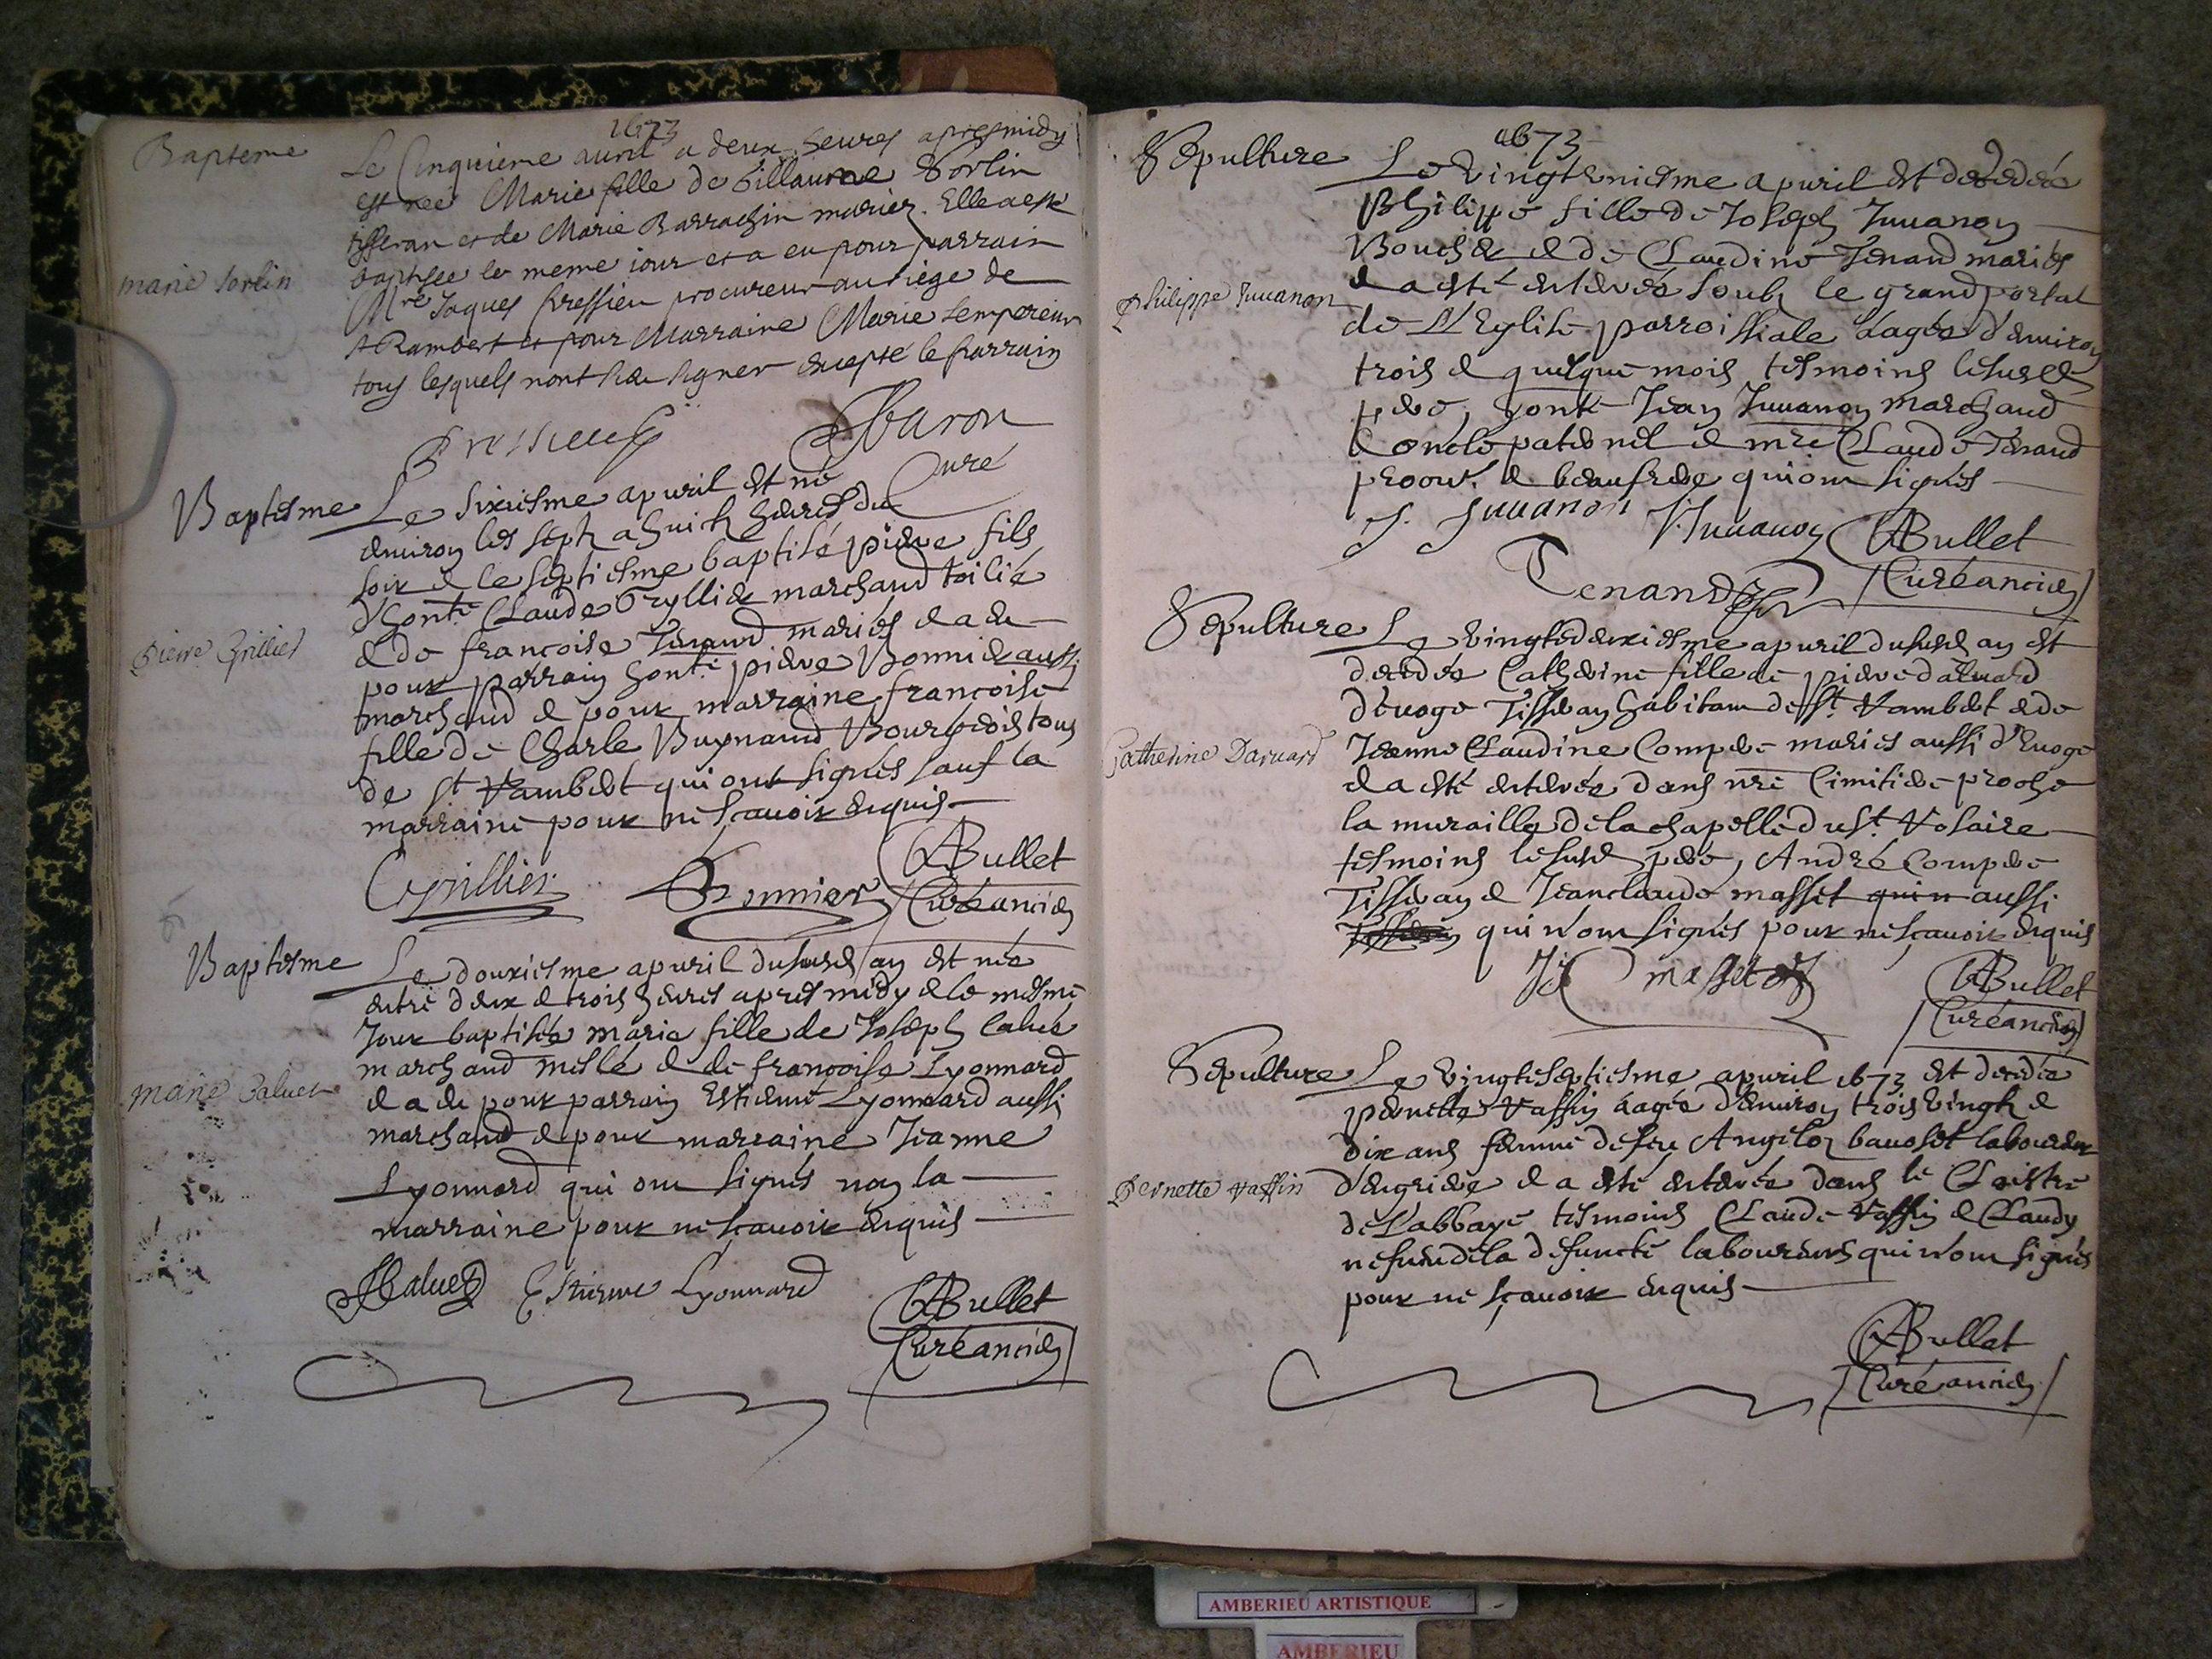 1673
Bapteme
Le Cinquieme auril a deux heures apres midy
est née Marie fille de Gillaume Sorlin
tisseran et de Marie Barrachin mariez. Elle a esté
baptisée le meme iour et a eu pour parrain
marie sorlin
Mre Jaques Bressieu procureur au siege de
st Rambert et pour Marraine Marie Lempereur
tous lesquels nont sceu signer excepté le parrain
Bressieu Baron
Curé
Baptesme
Le sixiesme apuril est né
enuiron les sept a huict heures du
soir et le septiesme baptisé pierre fils
d'hont. Claude Gryllier marchand toilié
Pierre Grillier
et de francoise Tenand mariés et a eu
pour parrain hont. pierre Bonnier aussi
marchand et pour marraine francoise
fille de Charle Buynand Bourgeois tous
de st Rambert qui ont signés sauf la
marraine pour ne scauoir enquis
Grillier Bonnier ABullet
Curéancien
Baptesme
Le douxiesme apuril du susd an est née
entre deux et trois heures apres midy et le mesme
Jour baptisée marie fille de Joseph Caluet
marchand meslé et de francoise Lyonnard
marie Caluet
et a eu pour parrain Estienne Lyonnard aussi
marchand et pour marraine Jeanne
Lyonnard qui ont signés non la
marraine pour ne scauoir enquis
JCaluet Estienne Lyonnard ABullet
Curéancien
1673
Sepulture
Le Vingtvniesme apuril est decedée
Philippe fille de Joseph Juuanon
Boucher et de Claudine Tenand mariés
et a esté enterrée soubz le grand portal
Philippe Juuanon
de L'Eglise parroissiale aagée d'enuiron
trois et quelque mois tesmoins le susd
pere, hont. Jean Juuanon marchand
Concle paternel et mre Claude Tenand
procur. et beaufrere qui ont signés
J. Juuanon J. Juuanon ABullet
Tenand Curéancien
Sepulture
Le Vingtedeuxiesme apuril du susd an est
decedée Catherine fille de pierre daruard
d'euoge Tisseran habitant de st Rambert et de
Catherine Daruard
Jeanne Claudine Compere mariés aussi d'Euoge
et a esté enterrée dans nre Cimitiere proche
la muraille de la chapelle du st. Rosaire
tesmoins le susd pere, André Compere
Tisseran et Jeanclaude masset qui n aussi
Tisseran qui n'ont signés pour ne scauoir enquis
JC masset ABullet
Curéancien
Sepulture
Le Vingteseptiesme apuril 1673 est decedée
pernette Vaffin aagée d'enuiron trois Vingt et
dix ans femme de feu Angeloz bauoset laboureur
Pernette Vaffin
d'engrieve et a esté enterrée dans le Cloistre
de l'abbaye tesmoins Claude Vaffin et Claudy
nefueu de la defuncte laboureurs qui n'ont signés
pour ne scauoir enquis
ABullet
Curéancien
AMBERIEU ARTISTIQUE
AMBERIEU